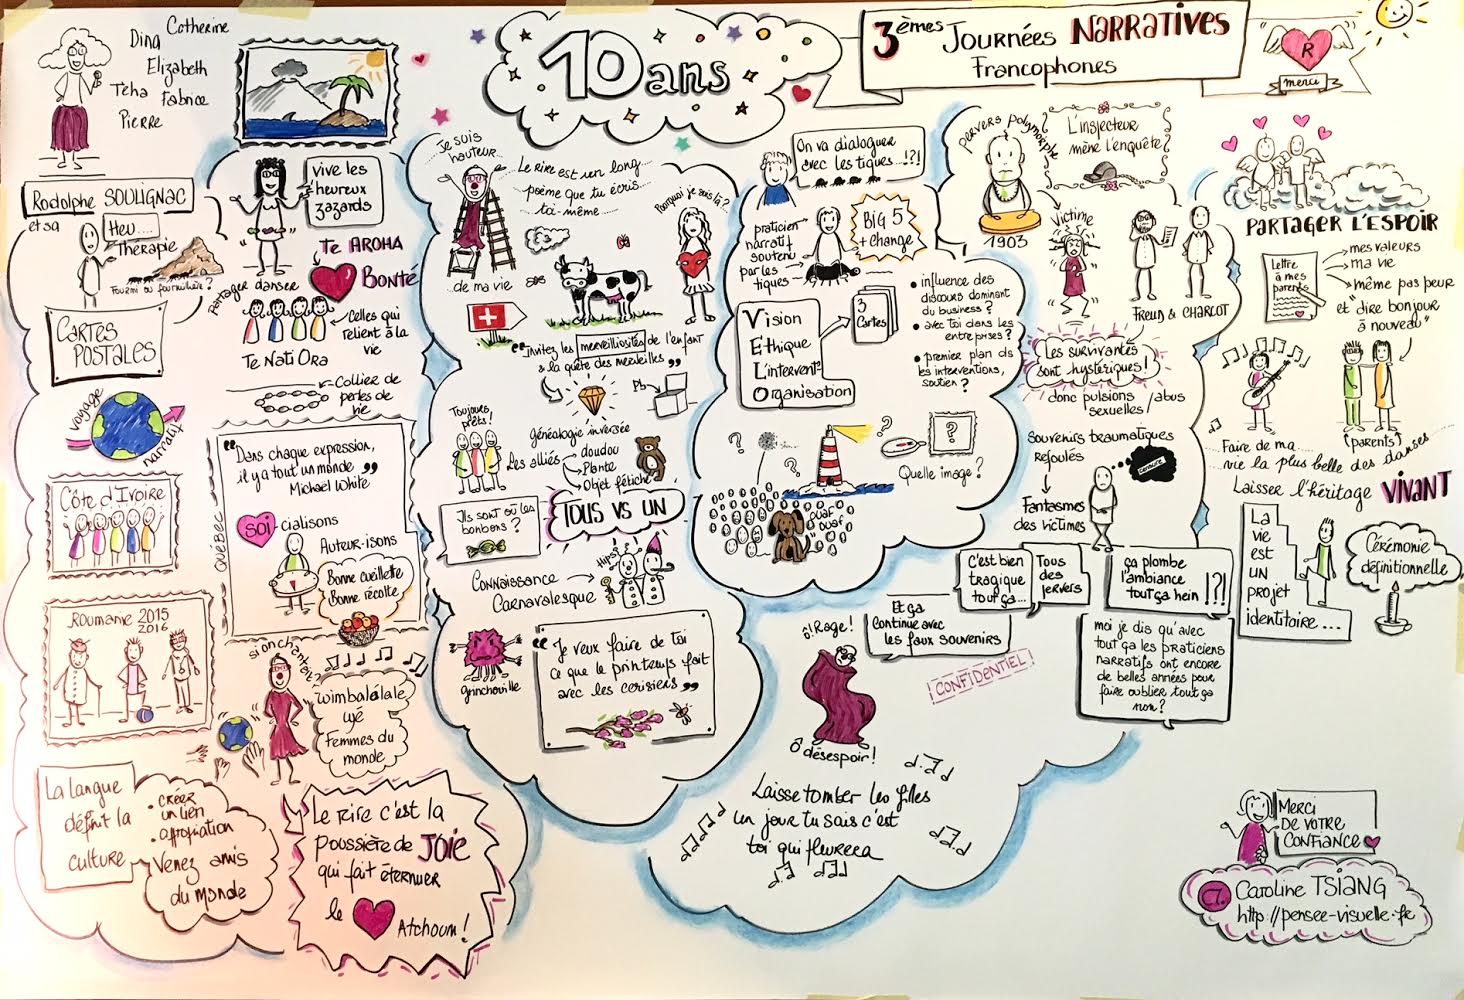 Catherine
Dina
Elizabeth
Fabrice
Pierre
10 ans
3èmes Journées NARRATIVES
Francophones
R
merci
Rodolphe SOULIGNAC
et sa
Heu....
thérapie
Fourmi ou fourmilière ?
CARTES
POSTALES
voyage
narratif
Côte d'Ivoire
Roumanie 2015
2016
La langue
définit la
culture
• créer
un lien
• appropriation
Venez amis
du monde
vive les
heureux
zazards
Te AROHA
Bonté
Partager danser
Celles qui
relient à la
vie
Te Nati Ora
Collier de
perles de
vie
QUÉBEC
"Dans chaque expression,
il y a tout un monde"
Michael White
SOI-cialisons
Auteur-isons
Bonne cueillette
Bonne récolte
si on chantait ?
Wimbalalalé
Femmes du
monde
Le Rire c'est la
poussière de JOIE
qui fait éternuer
le
Atchoum !
Je suis
hauteur...
Le rire est un long....
poème que tu écris....
toi-même......
...de ma vie
Pourquoi je suis là ?
"Invitez les merveilliosités de l'enfant
& la quête des merveilles"
Pb
Toujours
prêts !
généalogie inversée
Les alliés
doudou
Plante
Objet fétiche
Ils sont où les
bonbons ?
TOUS VS UN
Hips
CONNAISSANCE
Carnavalesque
grinchouille
"Je veux faire de toi
ce que le printemps fait
avec les cerisiers"
On va dialoguer
avec les tiques...!?!
praticien
narratif
soutenu
par les
tiques
BIG 5
+ change
Vision
Ethique
L'intervent°
Organisation
3
Cartes
• influence des
discours dominant
du business ?
• avec toi dans les
entreprises ?
• premier plan ds
les interventions,
soutien ?
?
?
?
?
Quelle image ?
ouaf
ouaf
pervers polymorphe
1903
L'inspecteur
mène l'enquête
Victime
FREUD & CHARCOT
Les survivantes
sont hystériques !
donc pulsions / abus
sexuelles
Souvenirs traumatiques
Refoulés
censure
Fantasmes
des victimes
C'est bien
tragique
tout ça...
Tous
des
pervers
ça plombe
l'ambiance
tout ça hein !?!
Et ça
Continue avec
les faux souvenirs
moi je dis qu'avec
tout ça les praticiens
narratifs ont encore
de belles années pour
faire oublier tout ça
non ?
CONFIDENTIEL
ô ! Rage !
Ô désespoir !
Laisse tomber les filles
un jour tu sais c'est
toi qui fleurera
PARTAGER L'ESPOIR
Lettre
à mes
parents
mes valeurs
ma vie
même pas peur
et "dire bonjour
à nouveau"
(parents)
Faire de ma....
....vie la plus belle des danses.....
Laisser l'héritage VIVANT
La
vie
est
un
projet
identitaire...
Cérémonie
définitionnelle
Merci
DE VOTRE
CONFIANCE
Caroline TSIANG
http://pensee-visuelle.fr